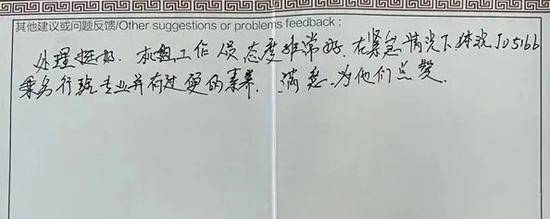 其他建议或问题反馈/Other suggestions or problems feedback:
处理挺好. 机组工作人员态度非常好. 在紧急情况下体现JD5166
乘务行班专业并有过硬的素养. 满意. 为他们点赞.